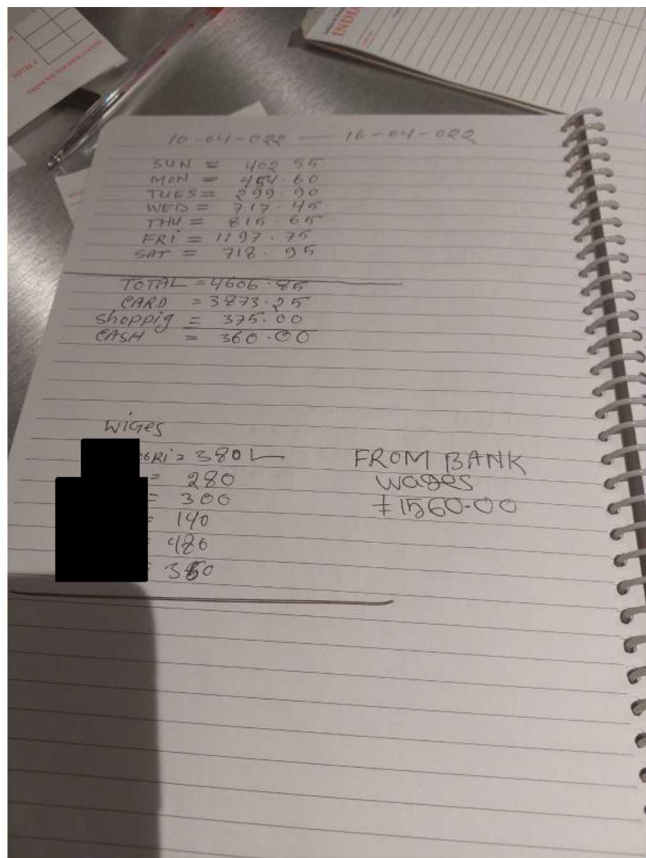 TOTAL £
INDI
10-04-022 — 16-04-022
SUN = 402.55
MON = 454.60
TUES = 299.90
WED = 717.45
THU = 815.65
FRI = 1197.75
SAT = 718.95
TOTAL = 4606.85
CARD = 3873.25
shoppig = 375.00
CASH = 360.00
WiGes
GRi = 380
= 280
= 300
= 140
= 480
= 350
FROM BANK
wages
£1560-00